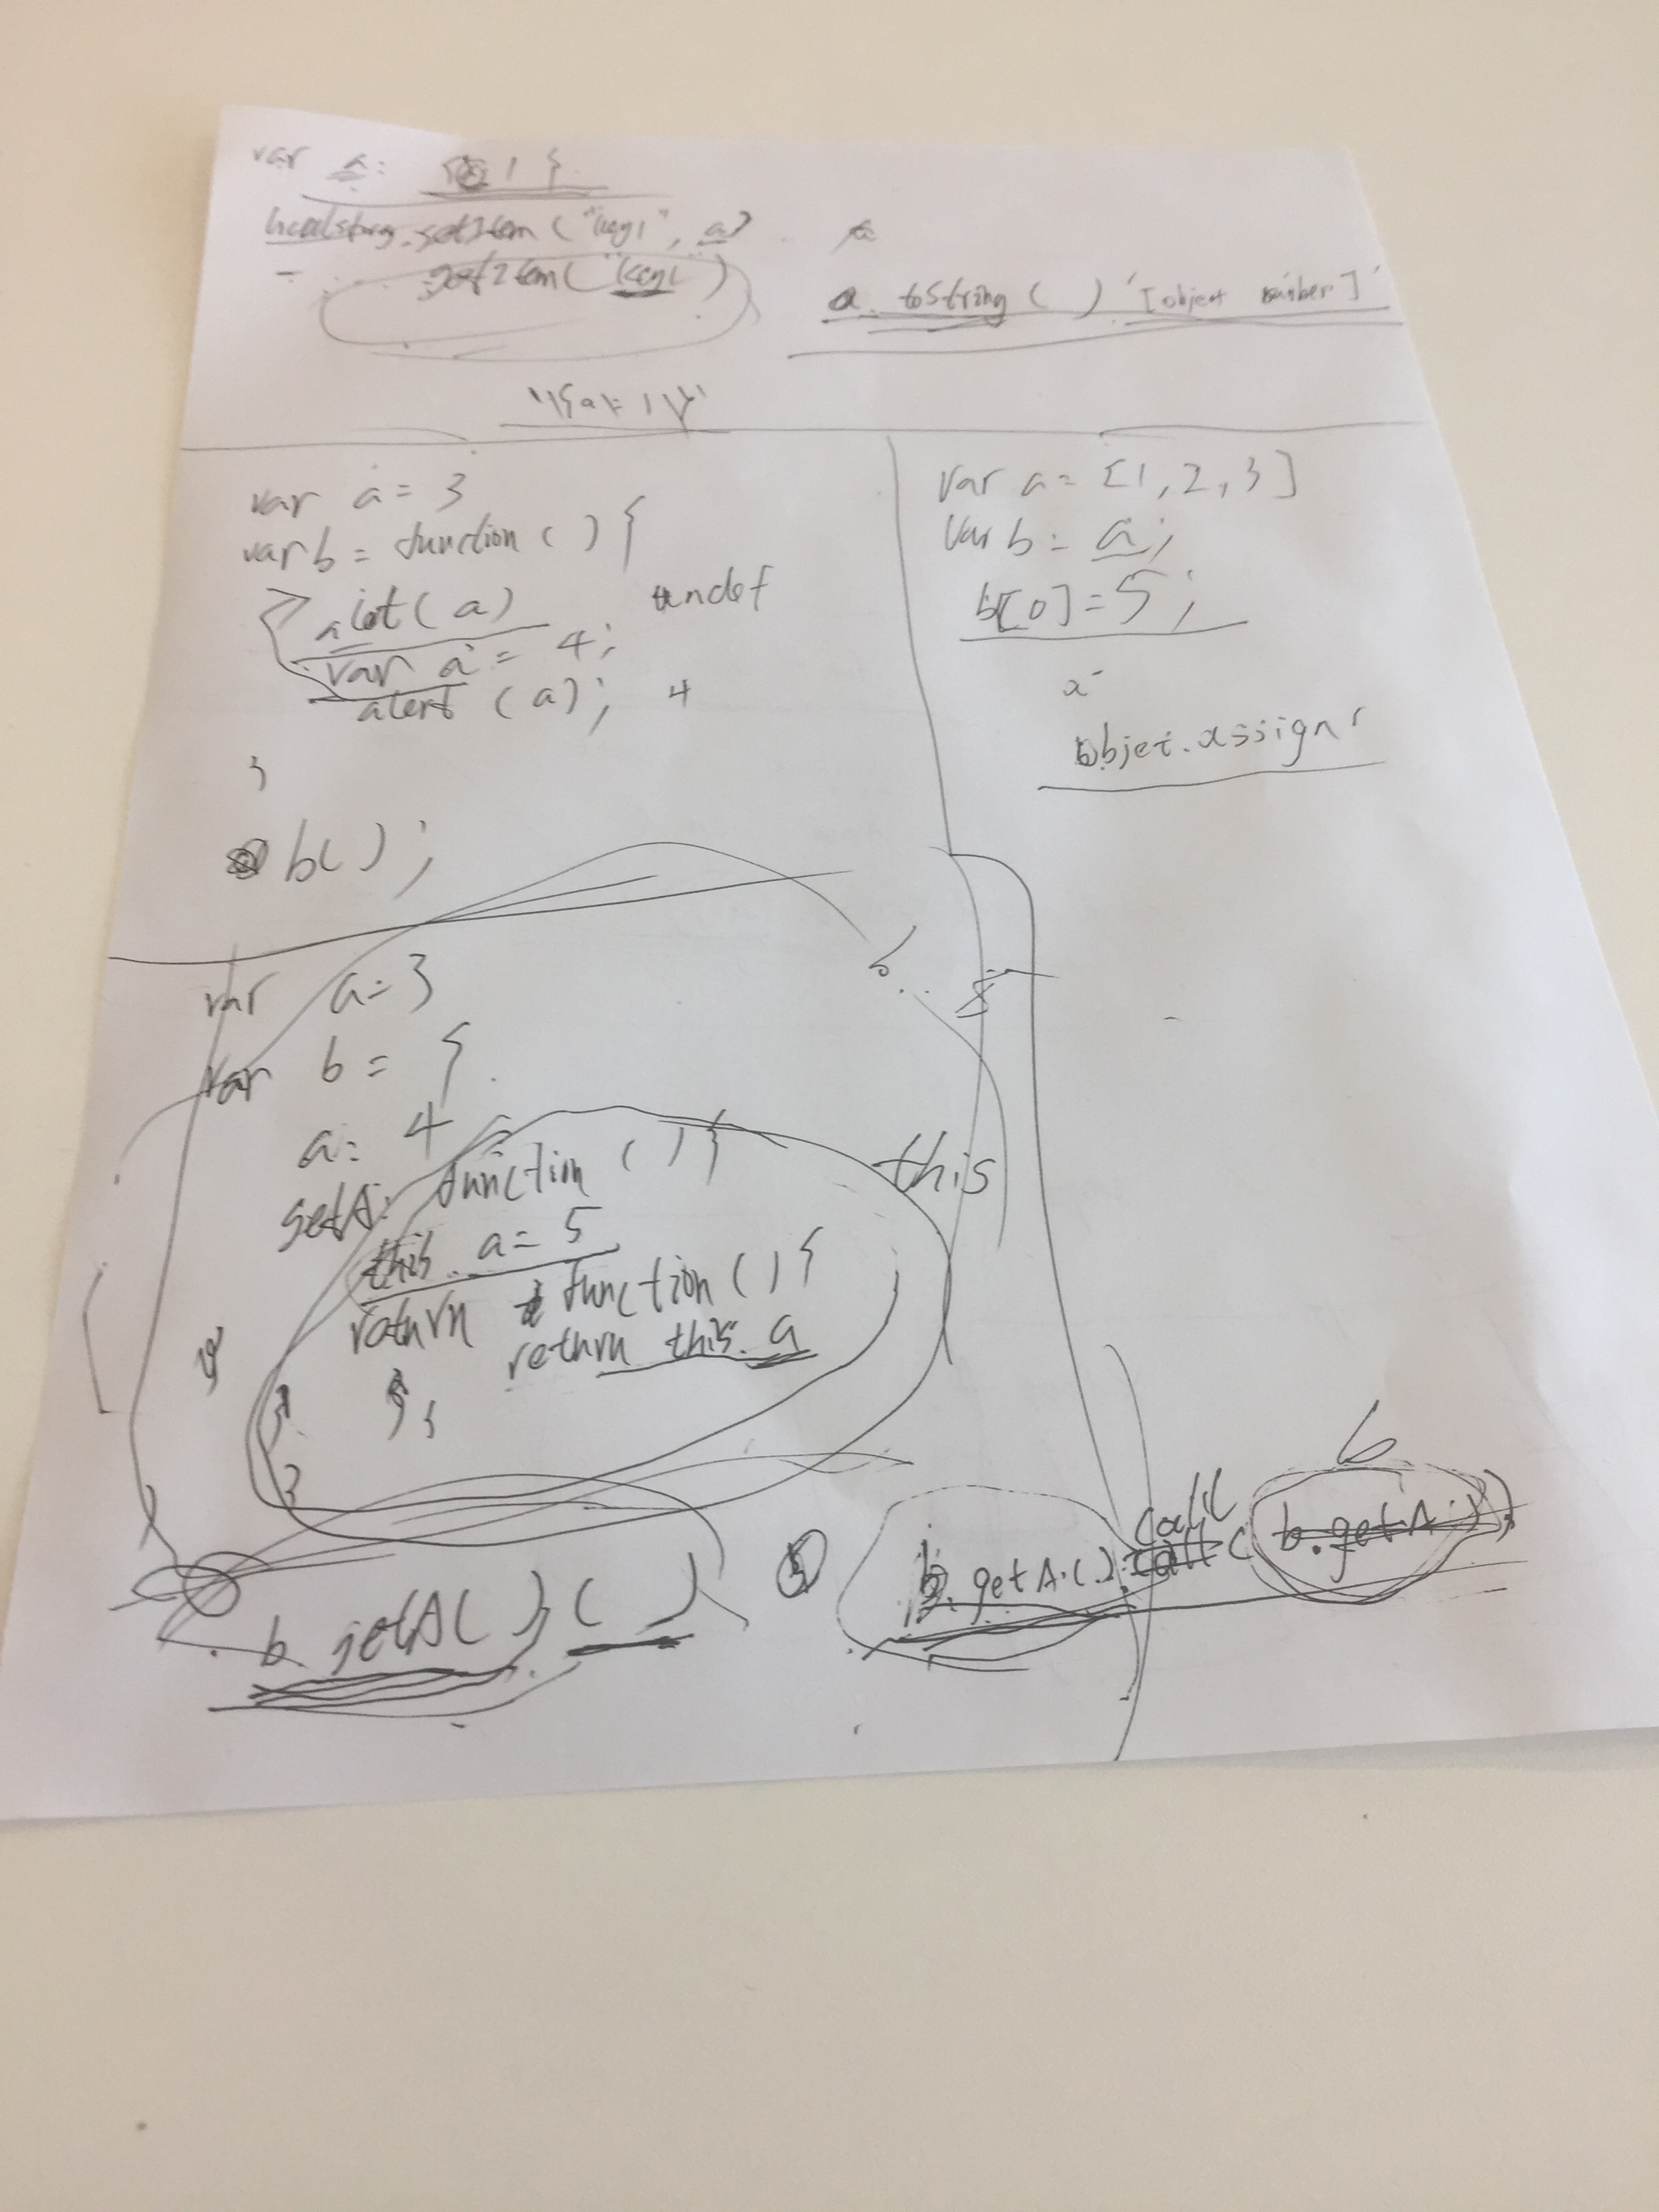 var a:
setItem ("key1", a)
getItem("key1")
a. toString ( ) '[object number]'
var a = 3
var b = function ( ) {
alert( a ) undef
var a = 4;
alert (a); 4
}
b( );
var a = [1, 2, 3]
Var b = a;
b[0] = 5;
a
Objet.assign
var a = 3
var b = {
a: 4
function ( ) {
this. a = 5
return function ( ) {
return this. a
}
}
this
b
b. getA.( ). call ( b. getA )